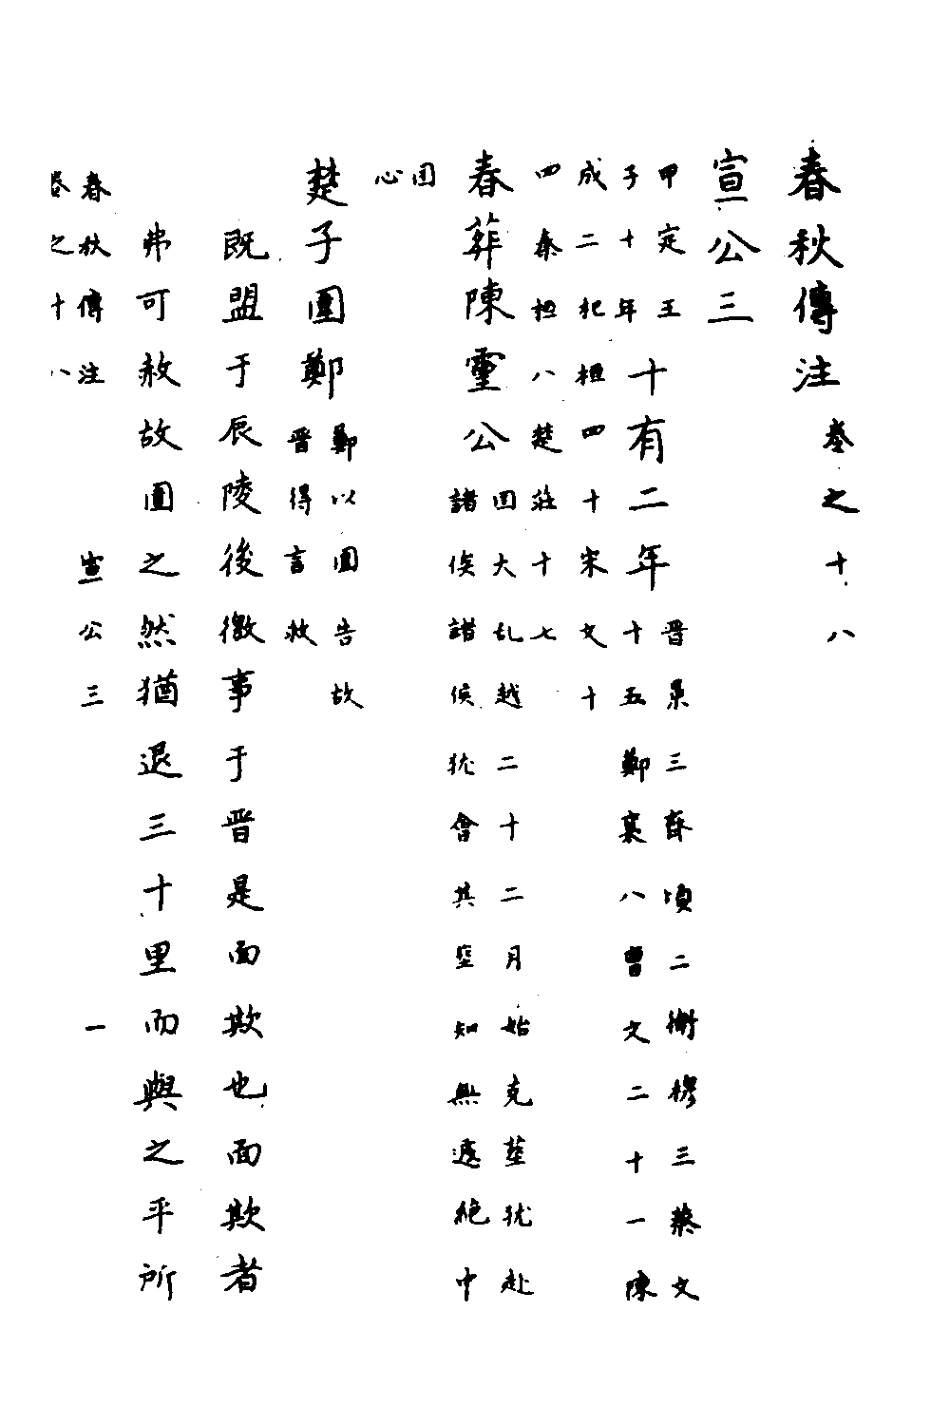 春秋傳注 卷之十八
宣公三
甲子 定王十年 十有二年 晋景三齊頃二衛穆三蔡文
十五鄭襄八曹文二十一陳
成二杞桓四十宋文十
四秦桓八楚莊十七
春葬陳靈公 国大乱越二十二月始克塟犹赴
諸侯諸侯犹會其塟知無遽絶中
国
心
楚子圍鄭 鄭以圍告故
晋得言救
既盟于辰陵後徼事于晋是面欺也面欺者
弗可赦故圍之然猶退三十里而與之平所
春秋傳注 宣公三 一
卷之十八